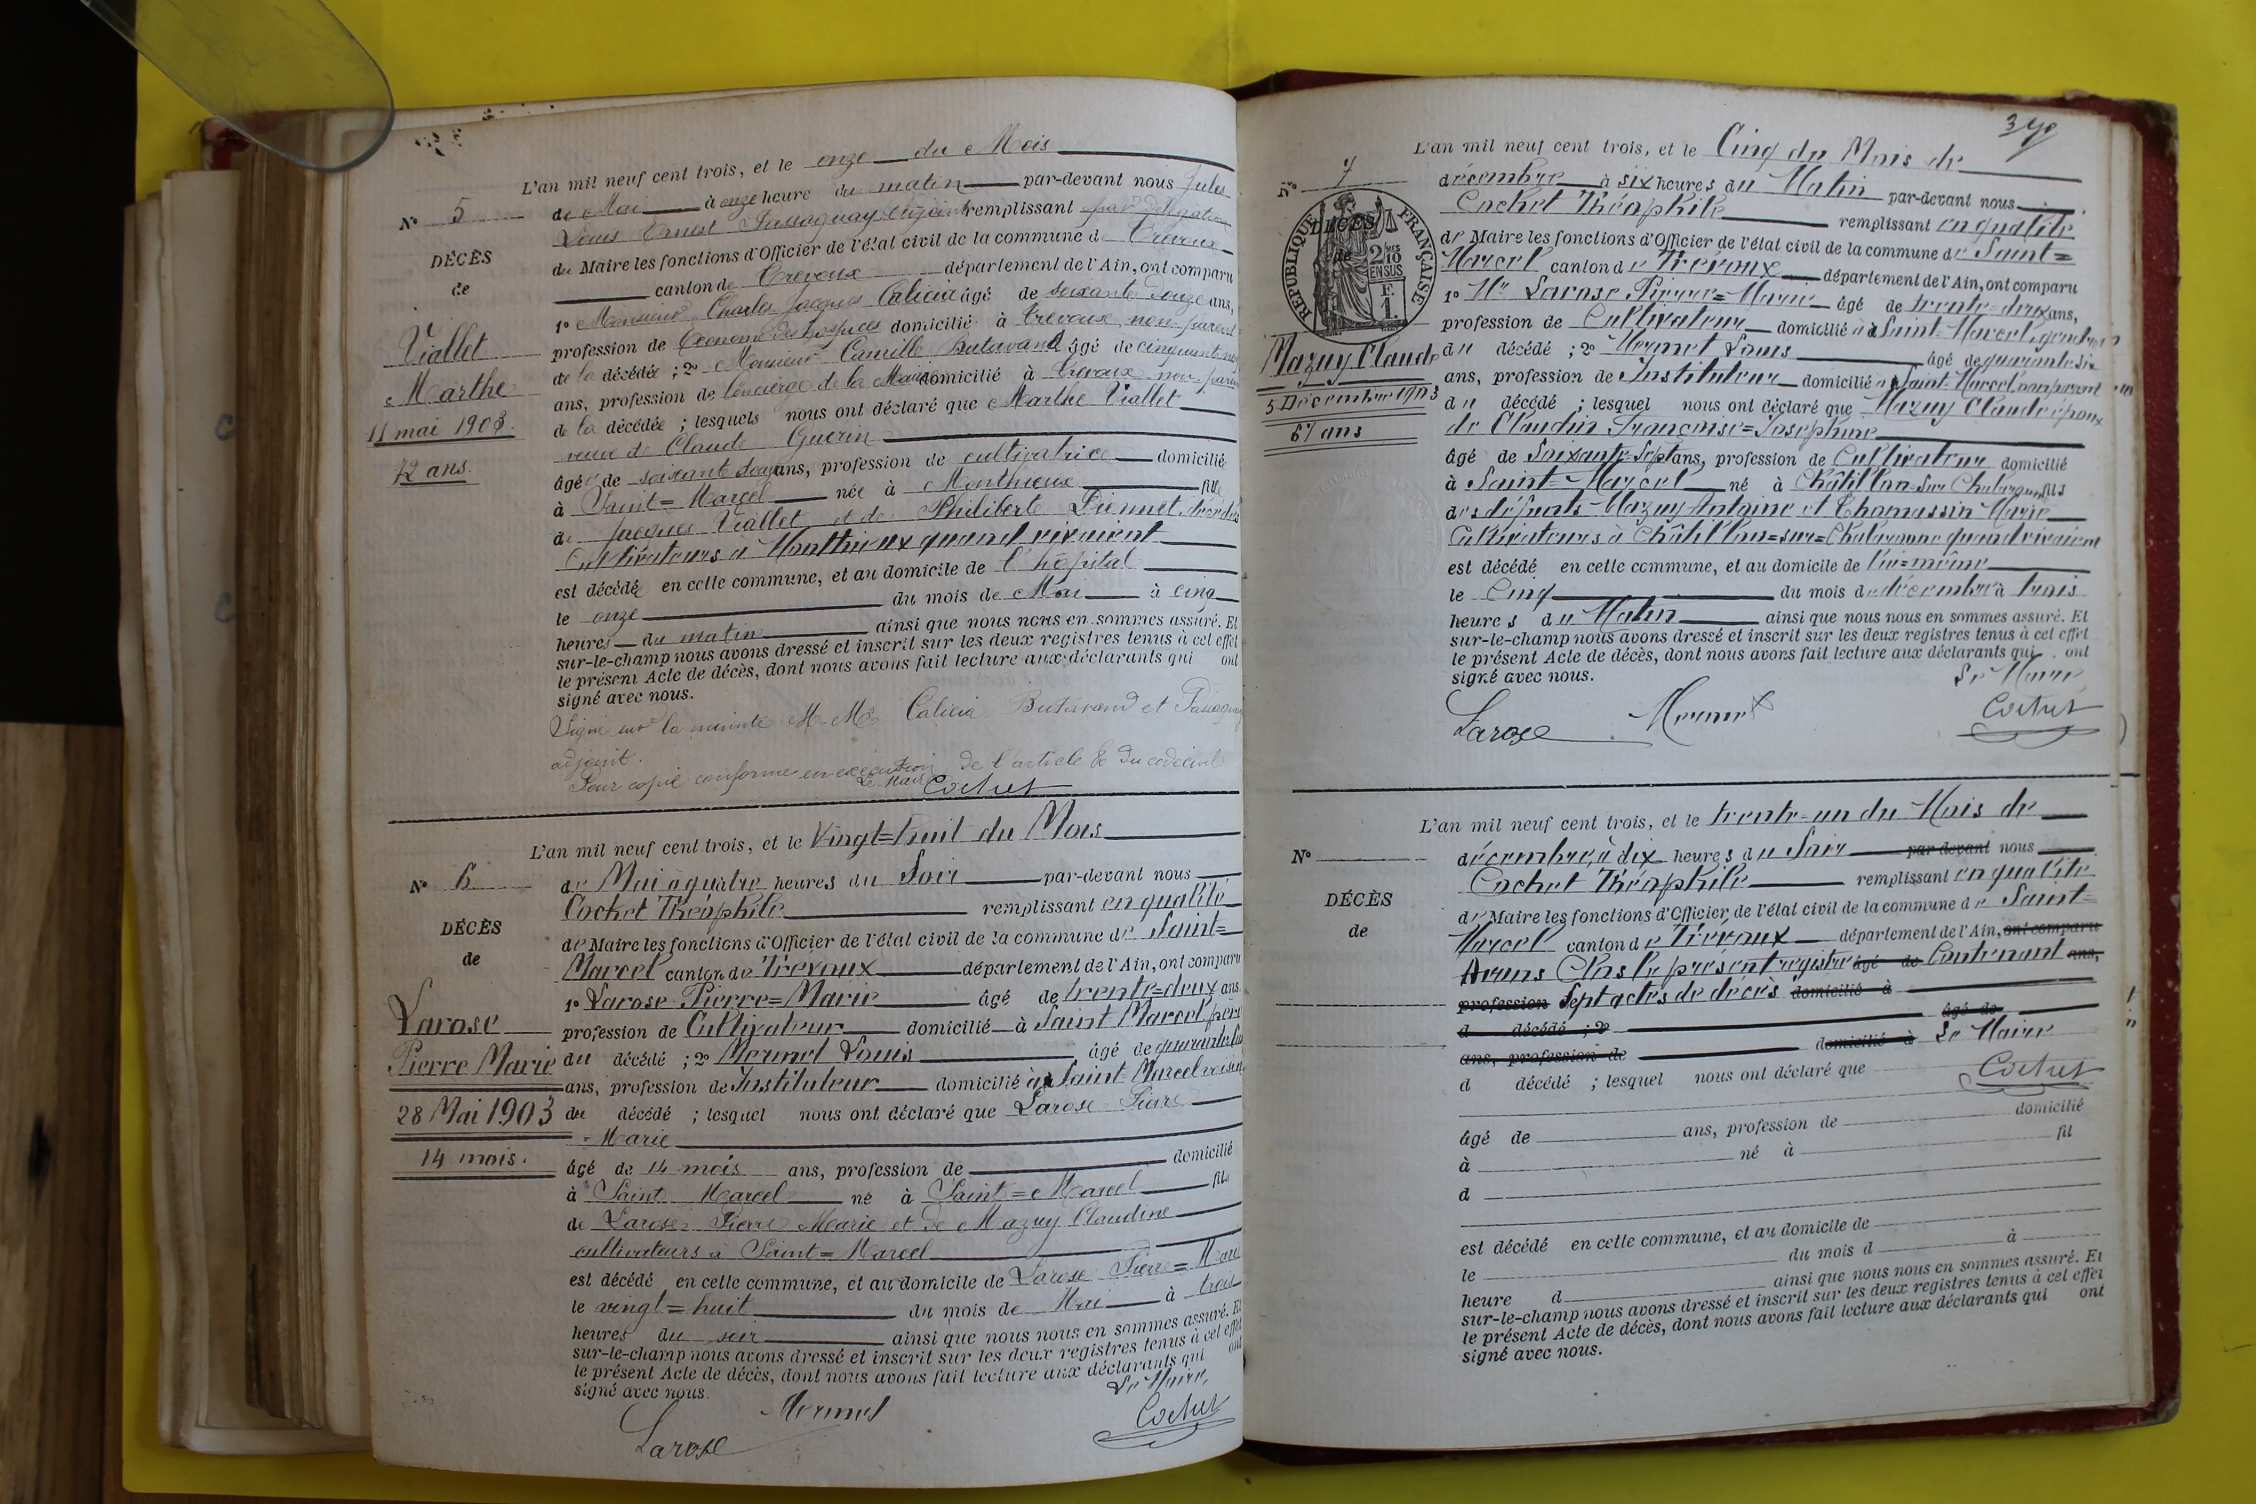 L'an mil neuf cent trois, et le onze du Mois
N° 5
de Mai à onze heure du matin par-devant nous Jules
Louis Ernest Passaquay adjoint remplissant par délégation
DÉCÈS
de
du Maire les fonctions d'Officier de l'état civil de la commune de Trévoux
canton de Trévoux département de l'Ain, ont comparu
1° Monsieur Charles Jacques Calicia âgé de soixante douze ans,
Viallet
Marthe
11 mai 1903.
72 ans.
profession de Econome des hospices domicilié à Trévoux, non parent
de la décédée ; 2° Monsieur Camille Butavand âgé de cinquante
ans, profession de Concierge de la Mairie domicilié à Trévoux non parent
de la décédée ; lesquels nous ont déclaré que Marthe Viallet
veuve de Claude Guerin
âgée de soixante douze ans, profession de cultivatrice domicilié
à Saint=Marcel née à Monthieux fille
de Jacques Viallet et de Philiberte Diennet, décédés
Cultivateurs à Monthieux quand vivaient
est décédée en cette commune, et au domicile de l'hôpital
le onze du mois de Mai à cinq
heures du matin ainsi que nous nous en sommes assuré. Et
sur-le-champ nous avons dressé et inscrit sur les deux registres tenus à cet effet
le présent Acte de décès, dont nous avons fait lecture aux déclarants qui ont
signé avec nous.
Signé sur la minute M. M. Calicia Butavand et Passaquay
adjoint.
Pour copie conforme en exécution de l'article 80 du code civil
Le Maire Cochet
L'an mil neuf cent trois, et le Vingt=huit du Mois
N° 6
de Mai à quatre heures du Soir par-devant nous
Cochet Théophile remplissant en qualité
DÉCÈS
de
de Maire les fonctions d'Officier de l'état civil de la commune de Saint=
Marcel canton de Trévoux département de l'Ain, ont comparu
1° Larose Pierre=Marie âgé de trente=deux ans
Larose
Pierre Marie
28 Mai 1903
14 mois.
profession de Cultivateur domicilié à Saint Marcel père
du décédé ; 2° Mermet Louis âgé de quarante six
ans, profession de Instituteur domicilié à Saint-Marcel voisin
du décédé ; lesquel nous ont déclaré que Larose Pierre
=Marie
âgé de 14 mois ans, profession de domicilié
à Saint Marcel né à Saint=Marcel fils
de Larose Pierre Marie et de Mazuy Claudine
cultivateurs à Saint=Marcel
est décédé en cette commune, et au domicile de Larose Pierre=Marie
le vingt=huit du mois de Mai à trois
heures du soir ainsi que nous nous en sommes assuré. Et
sur-le-champ nous avons dressé et inscrit sur les deux registres tenus à cet effet
le présent Acte de décès, dont nous avons fait lecture aux déclarants qui ont
signé avec nous.
Le Maire,
Larose Mermet Cochet
L'an mil neuf cent trois, et le Cinq du Mois de
N° 7
RÉPUBLIQUE FRANÇAISE
2/10 EN SUS
F. 1.
DÉCÈS
de
décembre à six heures du Matin par-devant nous
Cochet Théophile remplissant en qualité
de Maire les fonctions d'Officier de l'état civil de la commune de Saint=
Marcel canton de Trévoux département de l'Ain, ont comparu
1° Mr Larose Pierre=Marie âgé de trente-deux ans,
profession de Cultivateur domicilié à Saint-Marcel, gendre
Mazuy Claude
5 Décembre 1903
67 ans
du décédé ; 2° Mermet Louis âgé de quarante six
ans, profession de Instituteur domicilié à Saint-Marcel non parent
du décédé ; lesquel nous ont déclaré que Mazuy Claude époux
de Claudin Françoise=Joséphine
âgé de Soixante-Sept ans, profession de Cultivateur domicilié
à Saint-Marcel né à Châtillon-sur-Chalaronne fils
des défunts Mazuy Antoine et Chanussin Marie
Cultivateurs à Châtillon=sur=Chalaronne quand vivaient
est décédé en cette commune, et au domicile de lui=même
le Cinq du mois de décembre à trois
heures du Matin ainsi que nous nous en sommes assuré. Et
sur-le-champ nous avons dressé et inscrit sur les deux registres tenus à cet effet
le présent Acte de décès, dont nous avons fait lecture aux déclarants qui ont
signé avec nous.
Le Maire
Larose Mermet Cochet
L'an mil neuf cent trois, et le trente-un du Mois de
N°
décembre, à dix heures du Soir par-devant nous
Cochet Théophile remplissant en qualité
DÉCÈS
de
de Maire les fonctions d'Officier de l'état civil de la commune de Saint=
Marcel canton de Trévoux département de l'Ain, ont comparu
Avons Clos le présent registre âgé de Contenant ans,
profession Sept actes de décès domicilié à
d décédé ; 2° âgé de
ans, profession de domicilié à Le Maire
d décédé ; lesquel nous ont déclaré que Cochet
domicilié
âgé de ans, profession de
à né à fil
d
est décédé en cette commune, et au domicile de
le du mois d à
heure d ainsi que nous nous en sommes assuré. Et
sur-le-champ nous avons dressé et inscrit sur les deux registres tenus à cet effet
le présent Acte de décès, dont nous avons fait lecture aux déclarants qui ont
signé avec nous.